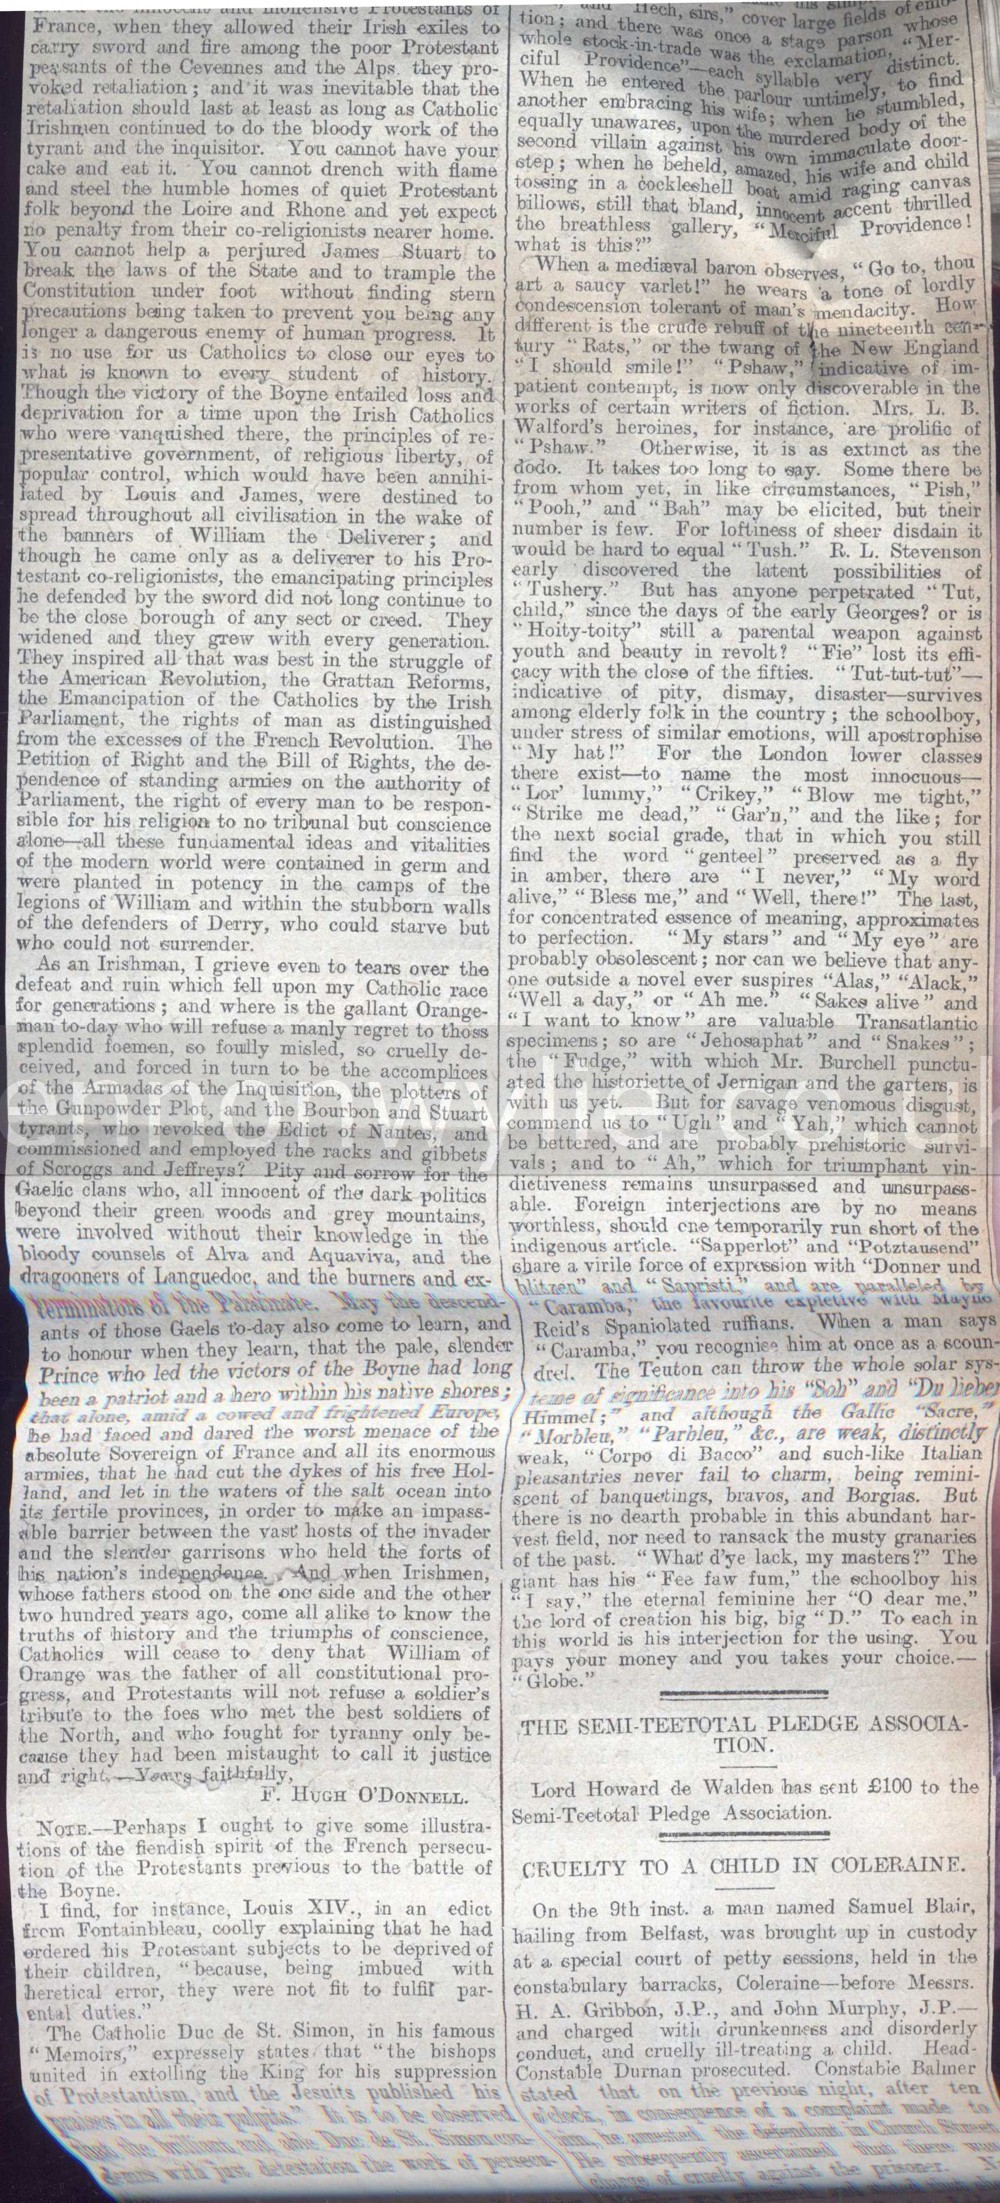 France, when they allowed their Irish exiles to
carry sword and fire among the poor Protestant
peasants of the Cevennes and the Alps, they pro-
voked retaliation; and it was inevitable that the
retaliation should last at least as long as Catholic
Irishmen continued to do the bloody work of the
tyrant and the inquisitor. You cannot have your
cake and eat it. You cannot drench with flame
and steel the humble homes of quiet Protestant
folk beyond the Loire and Rhone and yet expect
no penalty from their co-religionists nearer home.
You cannot help a perjured James Stuart to
break the laws of the State and to trample the
Constitution under foot without finding stern
precautions being taken to prevent you being any
longer a dangerous enemy of human progress. It
is no use for us Catholics to close our eyes to
what is known to every student of history.
Though the victory of the Boyne entailed loss and
deprivation for a time upon the Irish Catholics
who were vanquished there, the principles of re-
presentative government, of religious liberty, of
popular control, which would have been annihi-
lated by Louis and James, were destined to
spread throughout all civilisation in the wake of
the banners of William the Deliverer; and
though he came only as a deliverer to his Pro-
testant co-religionists, the emancipating principles
he defended by the sword did not long continue to
be the close borough of any sect or creed. They
widened and they grew with every generation.
They inspired all that was best in the struggle of
the American Revolution, the Grattan Reforms,
the Emancipation of the Catholics by the Irish
Parliament, the rights of man as distinguished
from the excesses of the French Revolution. The
Petition of Right and the Bill of Rights, the de-
pendence of standing armies on the authority of
Parliament, the right of every man to be respon-
sible for his religion to no tribunal but conscience
alone—all these fundamental ideas and vitalities
of the modern world were contained in germ and
were planted in potency in the camps of the
legions of William and within the stubborn walls
of the defenders of Derry, who could starve but
who could not surrender.
As an Irishman, I grieve even to tears over the
defeat and ruin which fell upon my Catholic race
for generations; and where is the gallant Orange-
man to-day who will refuse a manly regret to those
splendid foemen, so foully misled, so cruelly de-
ceived, and forced in turn to be the accomplices
of the Armadas of the Inquisition, the plotters of
the Gunpowder Plot, and the Bourbon and Stuart
tyrants, who revoked the Edict of Nantes, and
commissioned and employed the racks and gibbets
of Scroggs and Jeffreys? Pity and sorrow for the
Gaelic clans who, all innocent of the dark politics
beyond their green woods and grey mountains,
were involved without their knowledge in the
bloody counsels of Alva and Aquaviva, and the
dragooners of Languedoc, and the burners and ex-
terminators of the Palatinate. May the descend-
ants of those Gaels to-day also come to learn, and
to honour when they learn, that the pale, slender
Prince who led the victors of the Boyne had long
been a patriot and a hero within his native shores;
that alone, amid a cowed and frightened Europe,
he had faced and dared the worst menace of the
absolute Sovereign of France and all its enormous
armies, that he had cut the dykes of his free Hol-
land, and let in the waters of the salt ocean into
its fertile provinces, in order to make an impass-
able barrier between the vast hosts of the invader
and the slender garrisons who held the forts of
his nation's independence. And when Irishmen,
whose fathers stood on the one side and the other
two hundred years ago, come all alike to know the
truths of history and the triumphs of conscience,
Catholics will cease to deny that William of
Orange was the father of all constitutional pro-
gress, and Protestants will not refuse a soldier's
tribute to the foes who met the best soldiers of
the North, and who fought for tyranny only be-
cause they had been mistaught to call it justice
and right.—Yours faithfully,
F. HUGH O'DONNELL.
NOTE.—Perhaps I ought to give some illustra-
tions of the fiendish spirit of the French persecu-
tion of the Protestants previous to the battle of
the Boyne.
I find, for instance, Louis XIV., in an edict
from Fontainbleau, coolly explaining that he had
ordered his Protestant subjects to be deprived of
their children, "because, being imbued with
heretical error, they were not fit to fulfil par-
ental duties."
The Catholic Duc de St. Simon, in his famous
"Memoirs," expressely states that "the bishops
united in extolling the King for his suppression
of Protestantism, and the Jesuits published his
praises in all their pulpits." It is to be observed
that the brilliant and able Duc de St. Simon con-
demns with just detestation the work of persecu-
tion; and there was once a stage parson whose
whole stock-in-trade was the exclamation, "Mer-
ciful Providence"—each syllable very distinct.
When he entered the parlour untimely, to find
another embracing his wife; when he stumbled,
equally unawares, upon the murdered body of the
second villain against his own immaculate door-
step; when he beheld, amazed, his wife and child
tossing in a cockleshell boat amid raging canvas
billows, still that bland, innocent accent thrilled
the breathless gallery, "Merciful Providence!
what is this?"
When a mediæval baron observes, "Go to, thou
art a saucy varlet!" he wears a tone of lordly
condescension tolerant of man's mendacity. How
different is the crude rebuff of the nineteenth cen-
tury "Rats," or the twang of the New England
"I should smile!" "Pshaw," indicative of im-
patient contempt, is now only discoverable in the
works of certain writers of fiction. Mrs. L. B.
Walford's heroines, for instance, are prolific of
"Pshaw." Otherwise, it is as extinct as the
dodo. It takes too long to say. Some there be
from whom yet, in like circumstances, "Pish,"
"Pooh," and "Bah" may be elicited, but their
number is few. For loftiness of sheer disdain it
would be hard to equal "Tush." R. L. Stevenson
early discovered the latent possibilities of
"Tushery." But has anyone perpetrated "Tut,
child," since the days of the early Georges? or is
"Hoity-toity" still a parental weapon against
youth and beauty in revolt? "Fie" lost its effi-
cacy with the close of the fifties. "Tut-tut-tut"—
indicative of pity, dismay, disaster—survives
among elderly folk in the country; the schoolboy,
under stress of similar emotions, will apostrophise
"My hat!" For the London lower classes
there exist—to name the most innocuous—
"Lor' lummy," "Crikey," "Blow me tight,"
"Strike me dead," "Gar'n," and the like; for
the next social grade, that in which you still
find the word "genteel" preserved as a fly
in amber, there are "I never," "My word
alive," "Bless me," and "Well, there!" The last,
for concentrated essence of meaning, approximates
to perfection. "My stars" and "My eye" are
probably obsolescent; nor can we believe that any-
one outside a novel ever suspires "Alas," "Alack,"
"Well a day," or "Ah me." "Sakes alive" and
"I want to know" are valuable Transatlantic
specimens; so are "Jehosaphat" and "Snakes";
the "Fudge," with which Mr. Burchell punctu-
ated the historiette of Jernigan and the garters, is
with us yet. But for savage venomous disgust,
commend us to "Ugh" and "Yah," which cannot
be bettered, and are probably prehistoric survi-
vals; and to "Ah," which for triumphant vin-
dictiveness remains unsurpassed and unsurpass-
able. Foreign interjections are by no means
worthless, should one temporarily run short of the
indigenous article. "Sapperlot" and "Potztausend"
share a virile force of expression with "Donner und
blitzen" and "Sapristi," and are paralleled by
"Caramba," the favourite expletive with Mayne
Reid's Spaniolated ruffians. When a man says
"Caramba," you recognise him at once as a scoun-
drel. The Teuton can throw the whole solar sys-
teme of significance into his "Soh" and "Du lieber
Himmel;" and although the Gallic "Sacre,"
"Morbleu," "Parbleu," &c., are weak, distinctly
weak, "Corpo di Bacco" and such-like Italian
pleasantries never fail to charm, being remini-
scent of banquetings, bravos, and Borgias. But
there is no dearth probable in this abundant har-
vest field, nor need to ransack the musty granaries
of the past. "What d'ye lack, my masters?" The
giant has his "Fee faw fum," the schoolboy his
"I say," the eternal feminine her "O dear me,"
the lord of creation his big, big "D." To each in
this world is his interjection for the using. You
pays your money and you takes your choice.—
"Globe."
THE SEMI-TEETOTAL PLEDGE ASSOCIA-
TION.
Lord Howard de Walden has sent £100 to the
Semi-Teetotal Pledge Association.
CRUELTY TO A CHILD IN COLERAINE.
On the 9th inst. a man named Samuel Blair,
hailing from Belfast, was brought up in custody
at a special court of petty sessions, held in the
constabulary barracks, Coleraine—before Messrs.
H. A. Gribbon, J.P., and John Murphy, J.P.—
and charged with drunkenness and disorderly
conduct, and cruelly ill-treating a child. Head-
Constable Durnan prosecuted. Constable Balmer
stated that on the previous night, after ten
o'clock, in consequence of a complaint made to
him, he arrested the defendant in Church Street
He subsequently ascertained that there was
charge of cruelty against the prisoner.